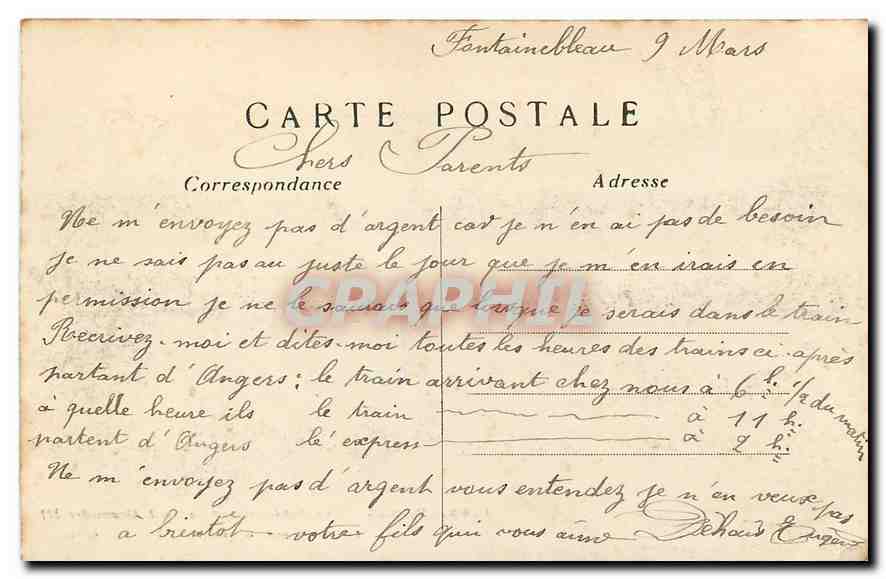 Fontainebleau 9 Mars
CARTE POSTALE
Chers Parents
Correspondance
Adresse
Ne m'envoyez pas d'argent car je n'en ai pas de besoin
je ne sais pas au juste le jour que je m'en irais en
permission je ne le saurais que lorsque je serais dans le train
Recrivez-moi et dites-moi toutes les heures des trains ci-après
partant d'Angers: le train arrivant chez nous à 6 h. 1/2 du matin
à quelle heure ils le train à 11 h.
partent d'Angers le express à 2 h.
Ne m'envoyez pas d'argent vous entendez je n'en veux pas
à bientôt votre fils qui vous aime
CPAPHIL